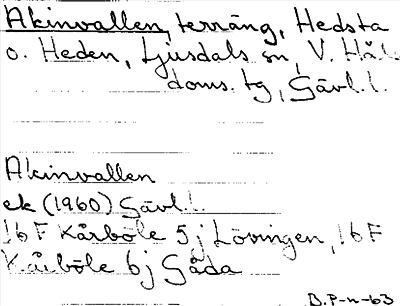 Akinvallen, terräng, Hedsta
o. Heden, Ljusdals sn, V. Häl.
doms. tg, Gävl. l.
Akinvallen
ek (1960) Gävl. l.
16 F Kårböle 5 j Lövingen, 16 F
Kårböle 6 j Gåda
B.P-n-63